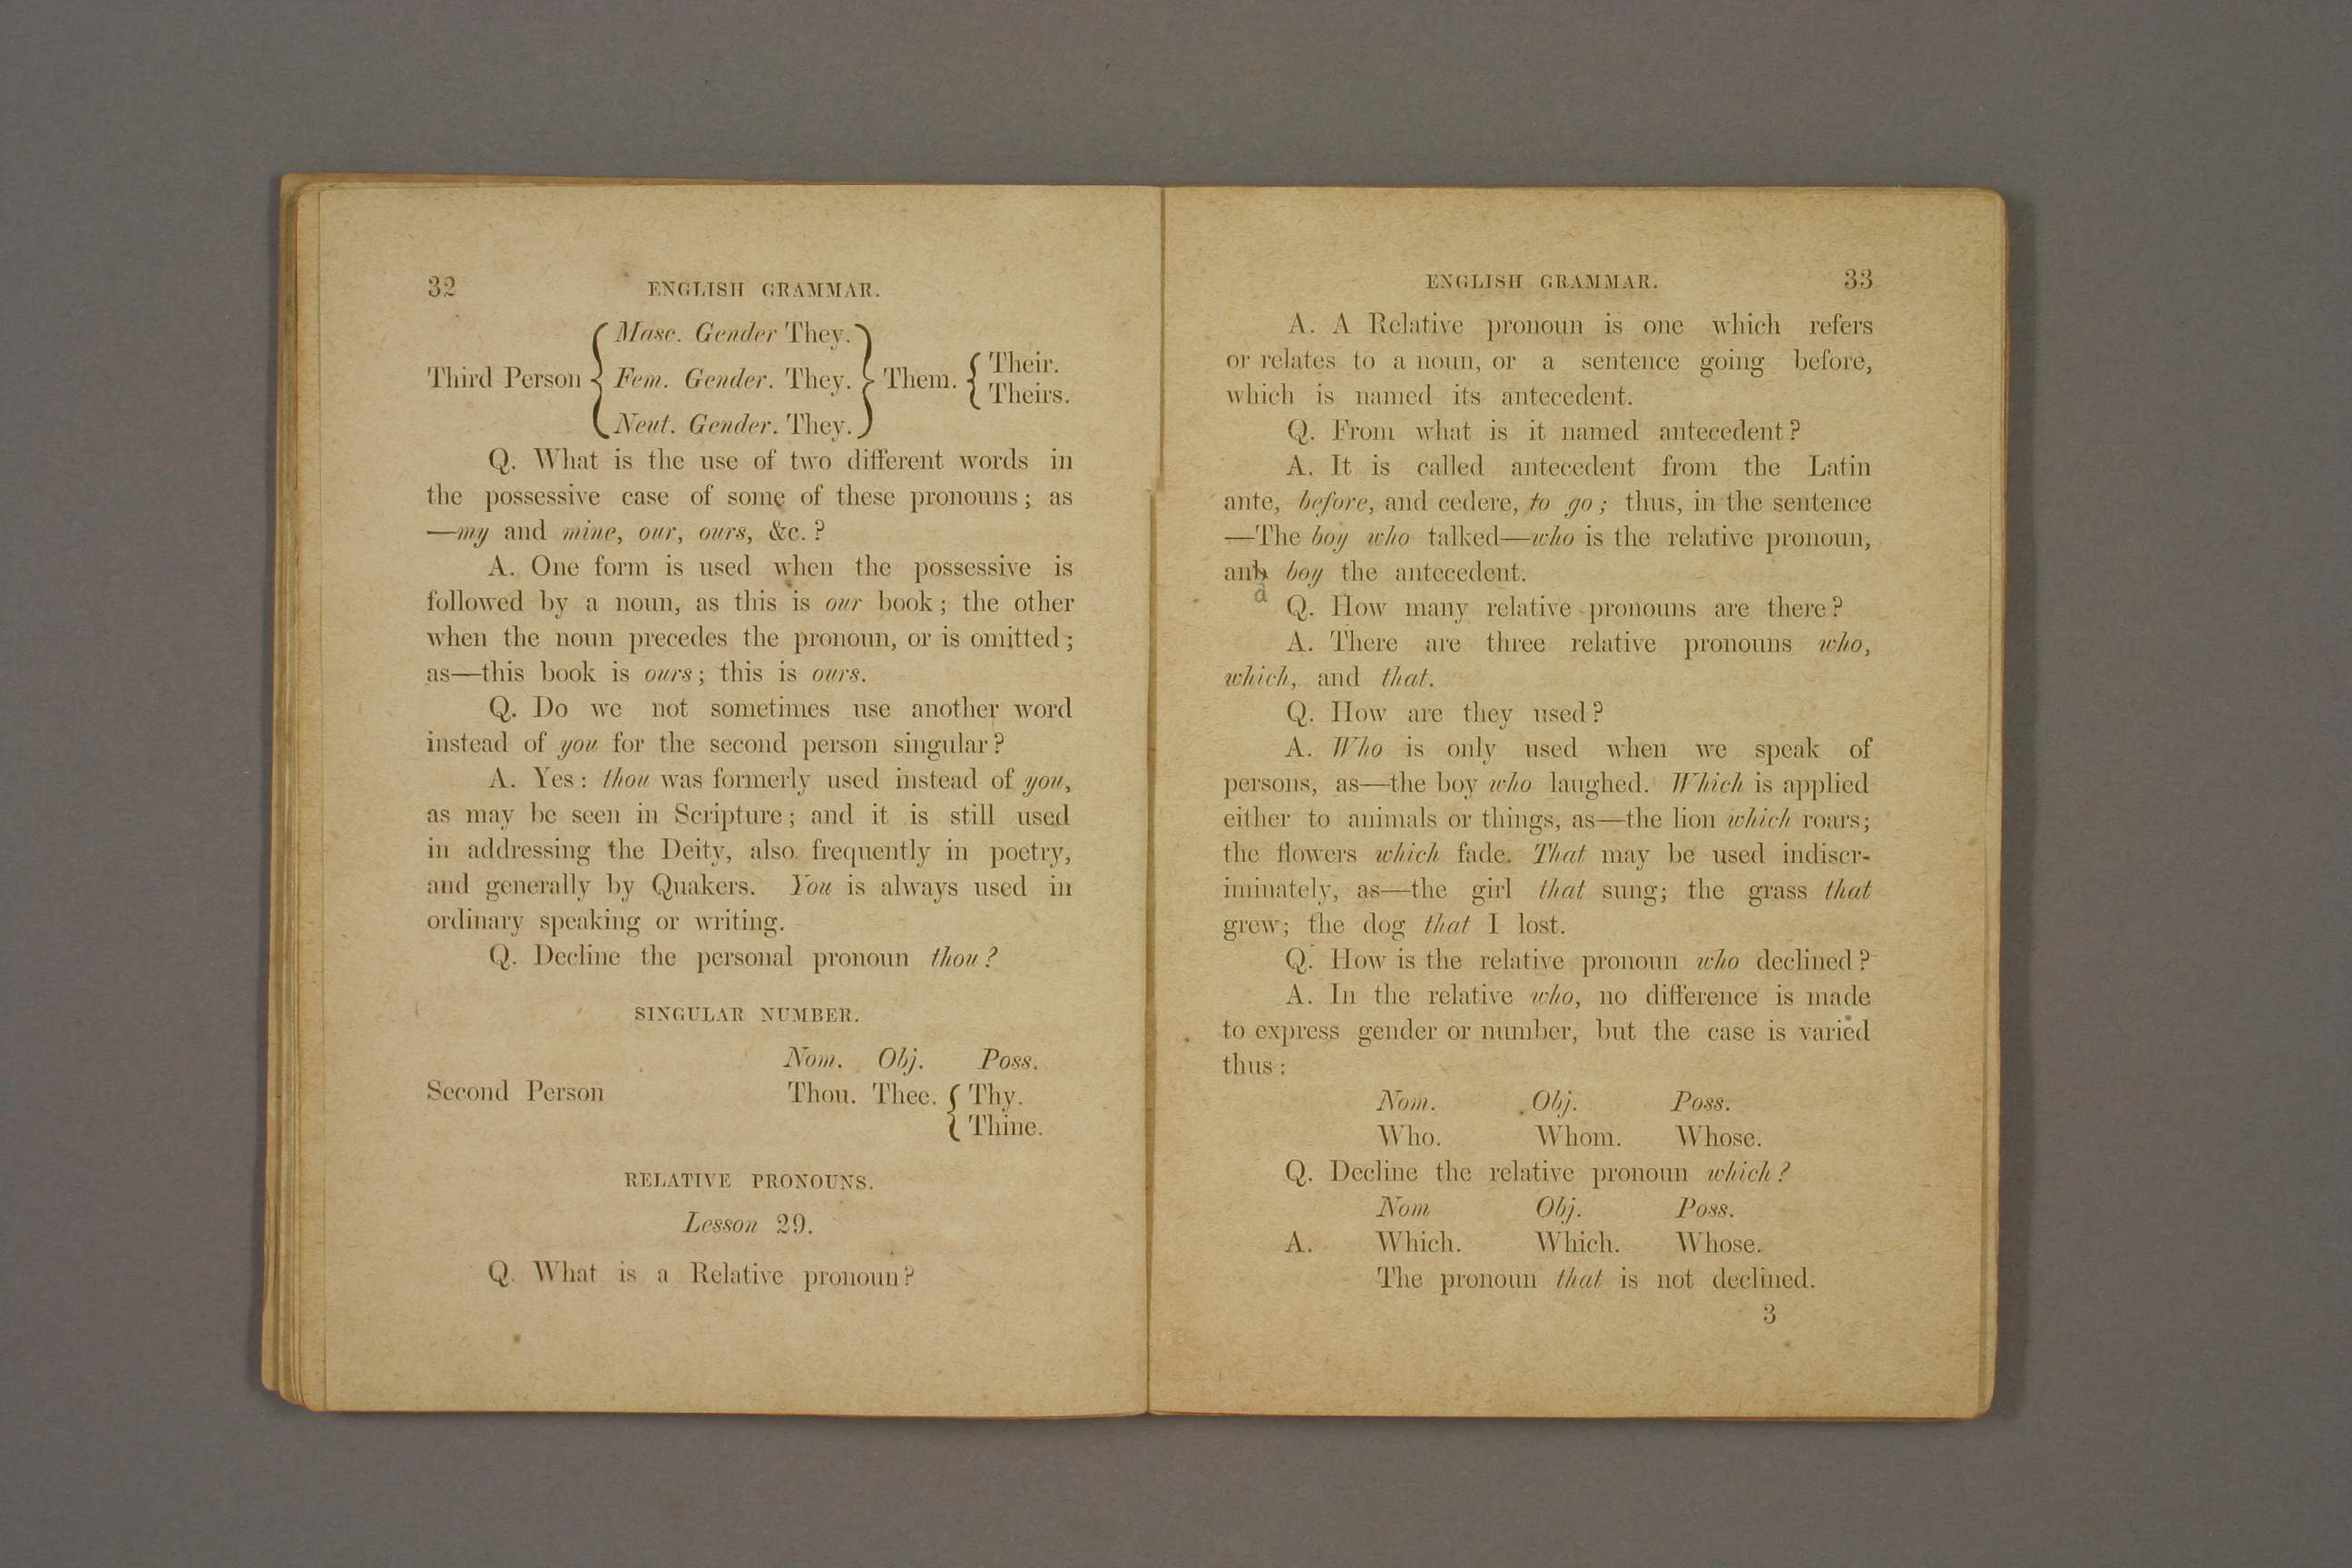 32 ENGLISH GRAMMAR.
Masc. Gender They.
Third Person { Fem. Gender. They. } Them. { Their.
Theirs.
Neut. Gender. They.
Q. What is the use of two different words in
the possessive case of some of these pronouns; as
—my and mine, our, ours, &c.?
A. One form is used when the possessive is
followed by a noun, as this is our book; the other
when the noun precedes the pronoun, or is omitted;
as—this book is ours; this is ours.
Q. Do we not sometimes use another word
instead of you for the second person singular?
A. Yes: thou was formerly used instead of you,
as may be seen in Scripture; and it is still used
in addressing the Deity, also frequently in poetry,
and generally by Quakers. You is always used in
ordinary speaking or writing.
Q. Decline the personal pronoun thou?
SINGULAR NUMBER.
Nom. Obj. Poss.
Second Person Thou. Thee. { Thy.
Thine.
RELATIVE PRONOUNS.
Lesson 29.
Q. What is a Relative pronoun?
ENGLISH GRAMMAR. 33
A. A Relative pronoun is one which refers
or relates to a noun, or a sentence going before,
which is named its antecedent.
Q. From what is it named antecedent?
A. It is called antecedent from the Latin
ante, before, and cedere, to go; thus, in the sentence
—The boy who talked—who is the relative pronoun,
anh boy the antecedent.
d
Q. How many relative pronouns are there?
A. There are three relative pronouns who,
which, and that.
Q. How are they used?
A. Who is only used when we speak of
persons, as—the boy who laughed. Which is applied
either to animals or things, as—the lion which roars;
the flowers which fade. That may be used indiscr-
iminately, as—the girl that sung; the grass that
grew; the dog that I lost.
Q. How is the relative pronoun who declined?
A. In the relative who, no difference is made
to express gender or number, but the case is varied
thus:
Nom. Obj. Poss.
Who. Whom. Whose.
Q. Decline the relative pronoun which?
Nom Obj. Poss.
A. Which. Which. Whose.
The pronoun that is not declined.
3